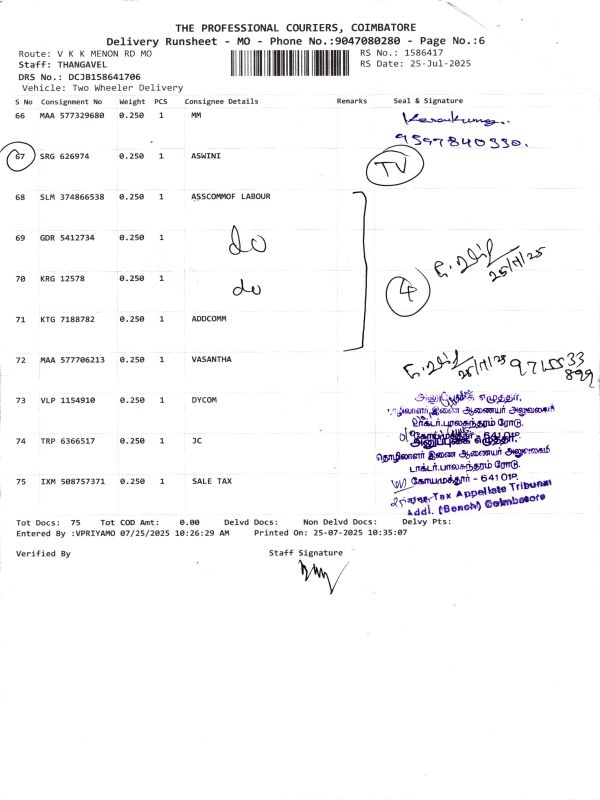 THE PROFESSIONAL COURIERS, COIMBATORE
Delivery Runsheet - MO - Phone No.:9047080280 - Page No.:6
Route: V K K MENON RD MO
RS No.: 1586417
Staff: THANGAVEL
RS Date: 25-Jul-2025
DRS No.: DCJB158641706
Vehicle: Two Wheeler Delivery
S No Consignment No Weight PCS Consignee Details Remarks Seal & Signature
66 MAA 577329680 0.250 1 MM
9597840330.
67 SRG 626974 0.250 1 ASWINI TV
68 SLM 374866538 0.250 1 ASSCOMMOF LABOUR
69 GDR 5412734 0.250 1 do
25/7/25
70 KRG 12578 0.250 1 do 4
71 KTG 7188782 0.250 1 ADDCOMM
72 MAA 577706213 0.250 1 VASANTHA 25/7/25
899
73 VLP 1154910 0.250 1 DYCOM
எழுத்தர்,
இணை ஆணையர் அலுவலகம்
74 TRP 6366517 0.250 1 JC
அனுப்புகை எழுத்தர்,
தொழிலாளர் இணை ஆணையர் அலுவலகம்
டாக்டர்.பாலசுந்தரம் ரோடு.
75 IXM 508757371 0.250 1 SALE TAX
கோயமுத்தூர் - 641018.
Tax Appellate Tribunal
Addl. (Bench) Coimbatore
Tot Docs: 75 Tot COD Amt: 0.00 Delvd Docs: Non Delvd Docs: Delvy Pts:
Entered By :VPRIYAMO 07/25/2025 10:26:29 AM Printed On: 25-07-2025 10:35:07
Verified By Staff Signature